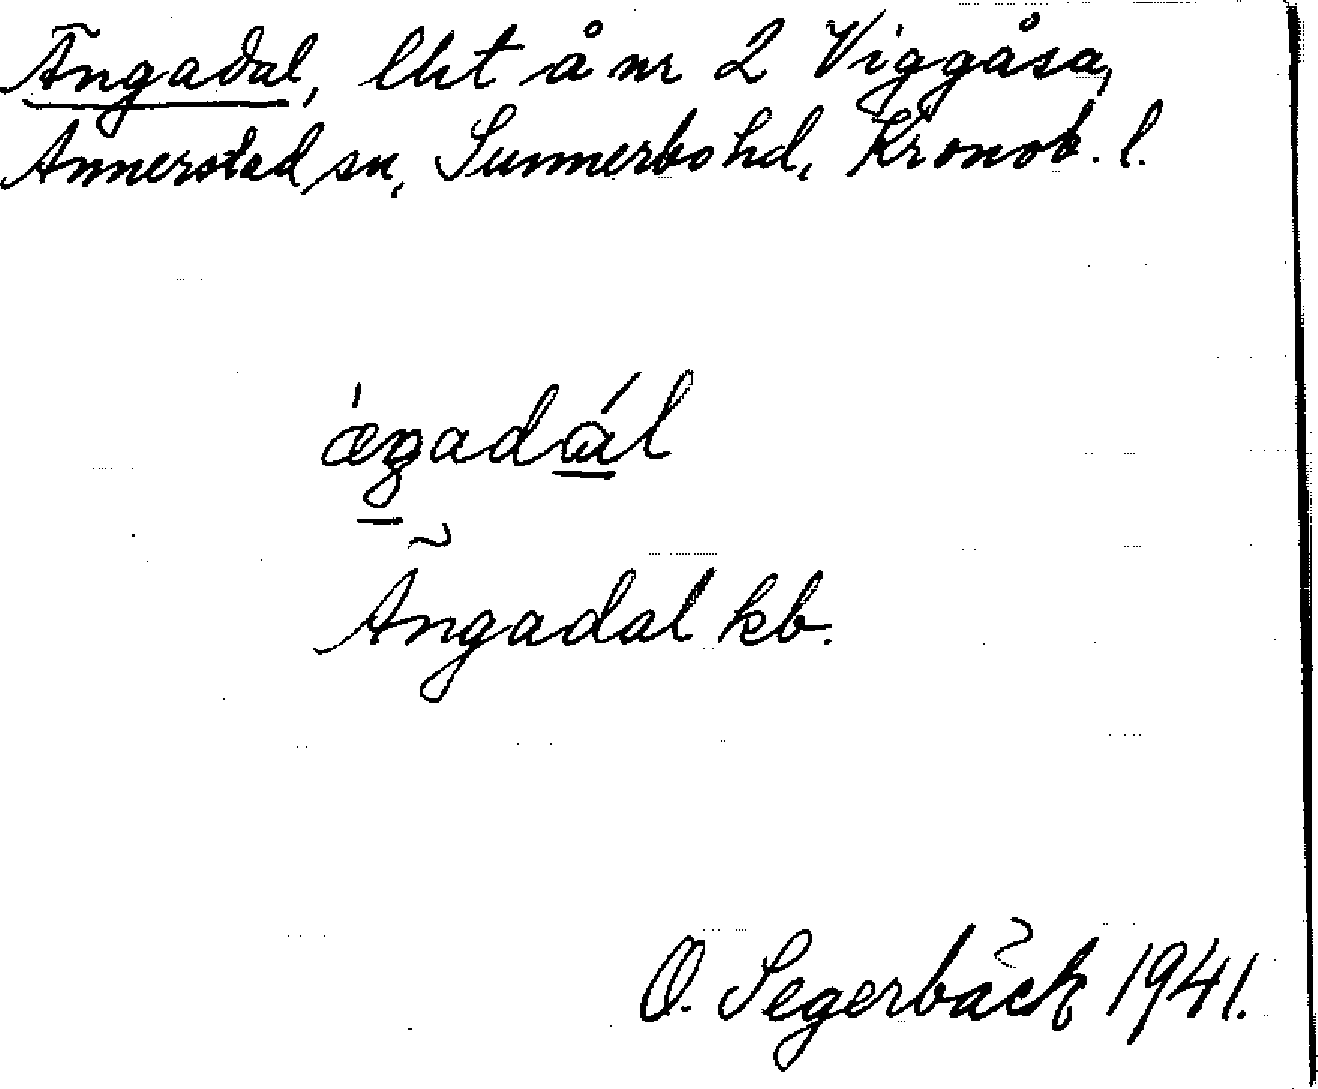 Ängadal, lht å nr 2 Viggåsa,
Annerstad sn, Sunnerbo hd, Kronob. l.
ǽŋadál
Ängadal kb.
O. Segerbäck 1941.